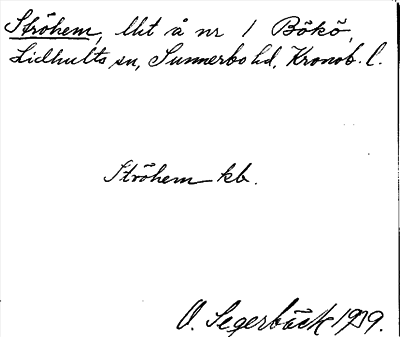 Ströhem, lht å nr 1 Bökö,
Lidhults sn, Sunnerbo hd, Kronob. l.
Ströhem kb.
O. Segerbäck 1939.